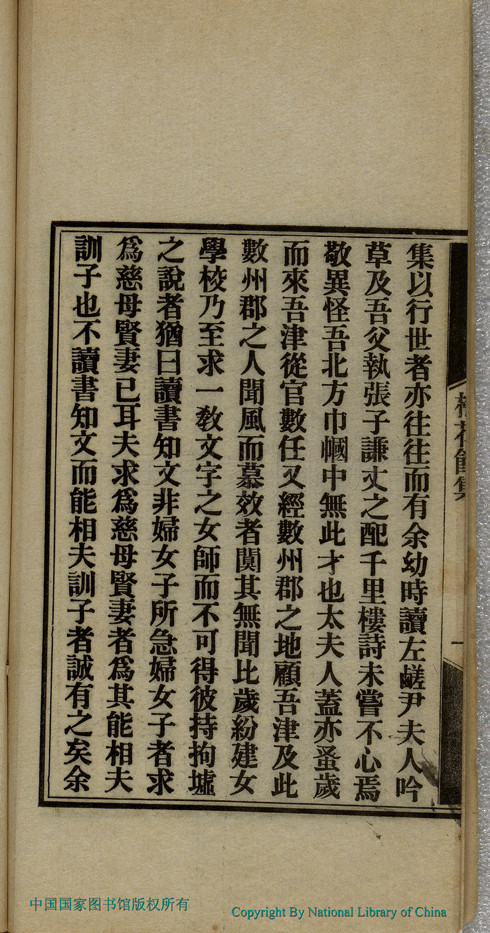 集以行世者亦往往而有余幼時讀左鹺尹夫人吟
草及吾父執張子謙丈之配千里樓詩未嘗不心焉
敬異怪吾北方巾幗中無此才也太夫人蓋亦蚤歲
而來吾津從官數任又經數州郡之地顧吾津及此
數州郡之人聞風而慕效者闃其無聞比歲紛建女
學校乃至求一敎文字之女師而不可得彼持拘墟
之說者猶曰讀書知文非婦女子所急婦女子者求
爲慈母賢妻已耳夫求爲慈母賢妻者爲其能相夫
訓子也不讀書知文而能相夫訓子者誠有之矣余
集
一
中国国家图书馆版权所有
Copyright By National Library of China